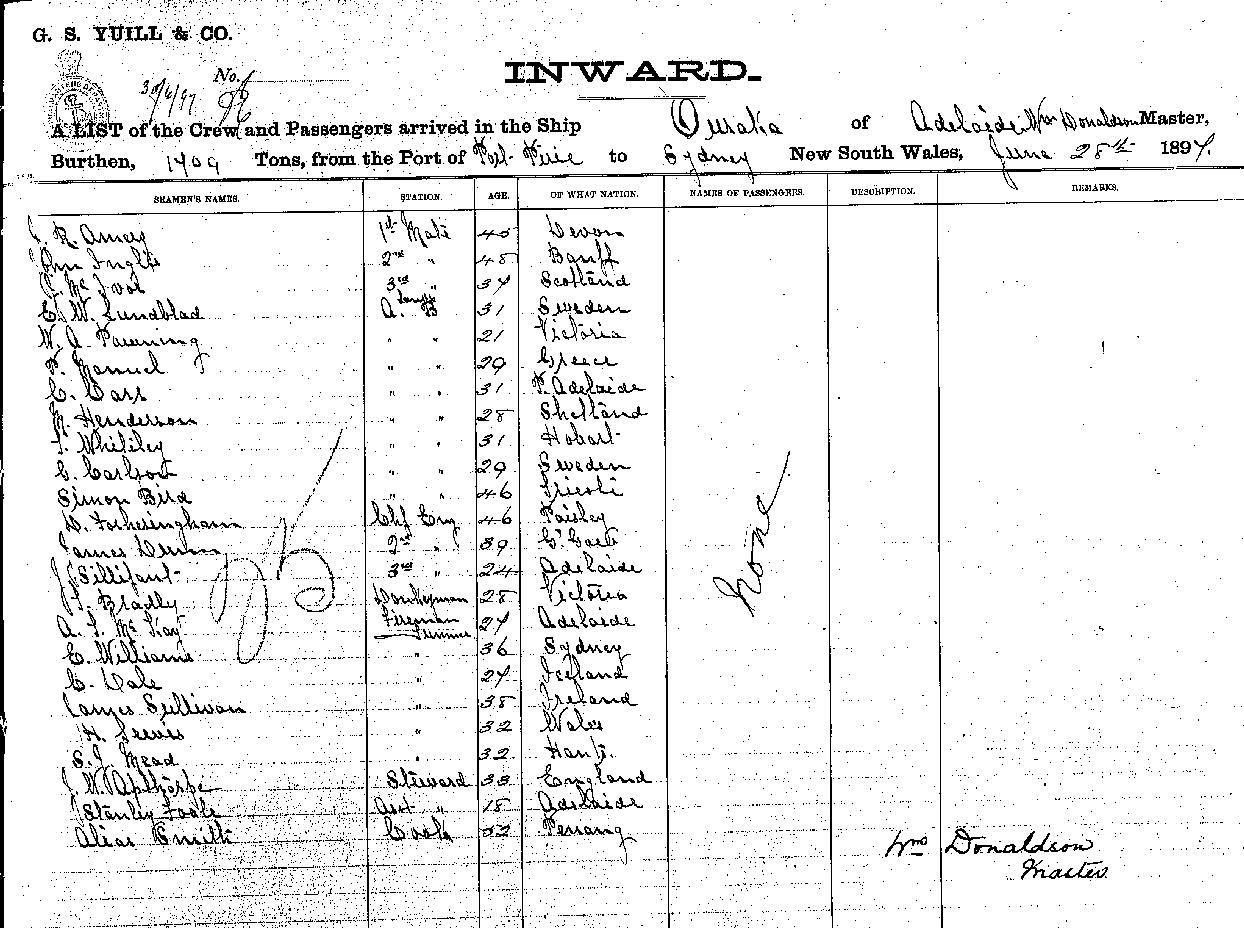 G. S. YUILL & CO.
INWARD.
No.
30/6/97 96
A LIST of the Crew and Passengers arrived in the Ship Ouraka of Adelaide Wm Donaldson Master,
Burthen, 1409 Tons, from the Port of Port Pirie to Sydney New South Wales, June 28th 1897.
SEAMEN'S NAMES. STATION. AGE. OF WHAT NATION. NAMES OF PASSENGERS. DESCRIPTION. REMARKS.
R Amey 1st Mate 45 Devon
Wm Inglis 2nd " 48 Banff
3rd " 37 Scotland
E. W. Lundblad Lamps A. B 31 Sweden
W. A. Pawning " " 21 Victoria
P. Manuel " " 29 Greece
C. Carr " " 31 P. Adelaide
M. Henderson " " 28 Shetland
Whiteley " " 31 Hobart
C. Carlson " " 29 Sweden
Simon Bird " " 46 Tricoli
D. Fotheringham Chf Eng 46 Paisley
James Dunn 2nd " 39
J. Sillifant 3rd " 24 Adelaide
J. Bradly Donkeyman 28 Victoria
A. S. McKay Fireman Trimmer 27 Adelaide
E. Williams " 36 Sydney
C. Dale " 27 Iceland
James Sullivan " 38 Ireland
H. Seeves " 32 Wales
S. J. Mead " 32 Hants.
J. W. Apthorpe Steward 33 England
Stanley Foale Asst " 18 Adelaide
Alias Smith Cook 52 Penang
None
Wm Donaldson
Master